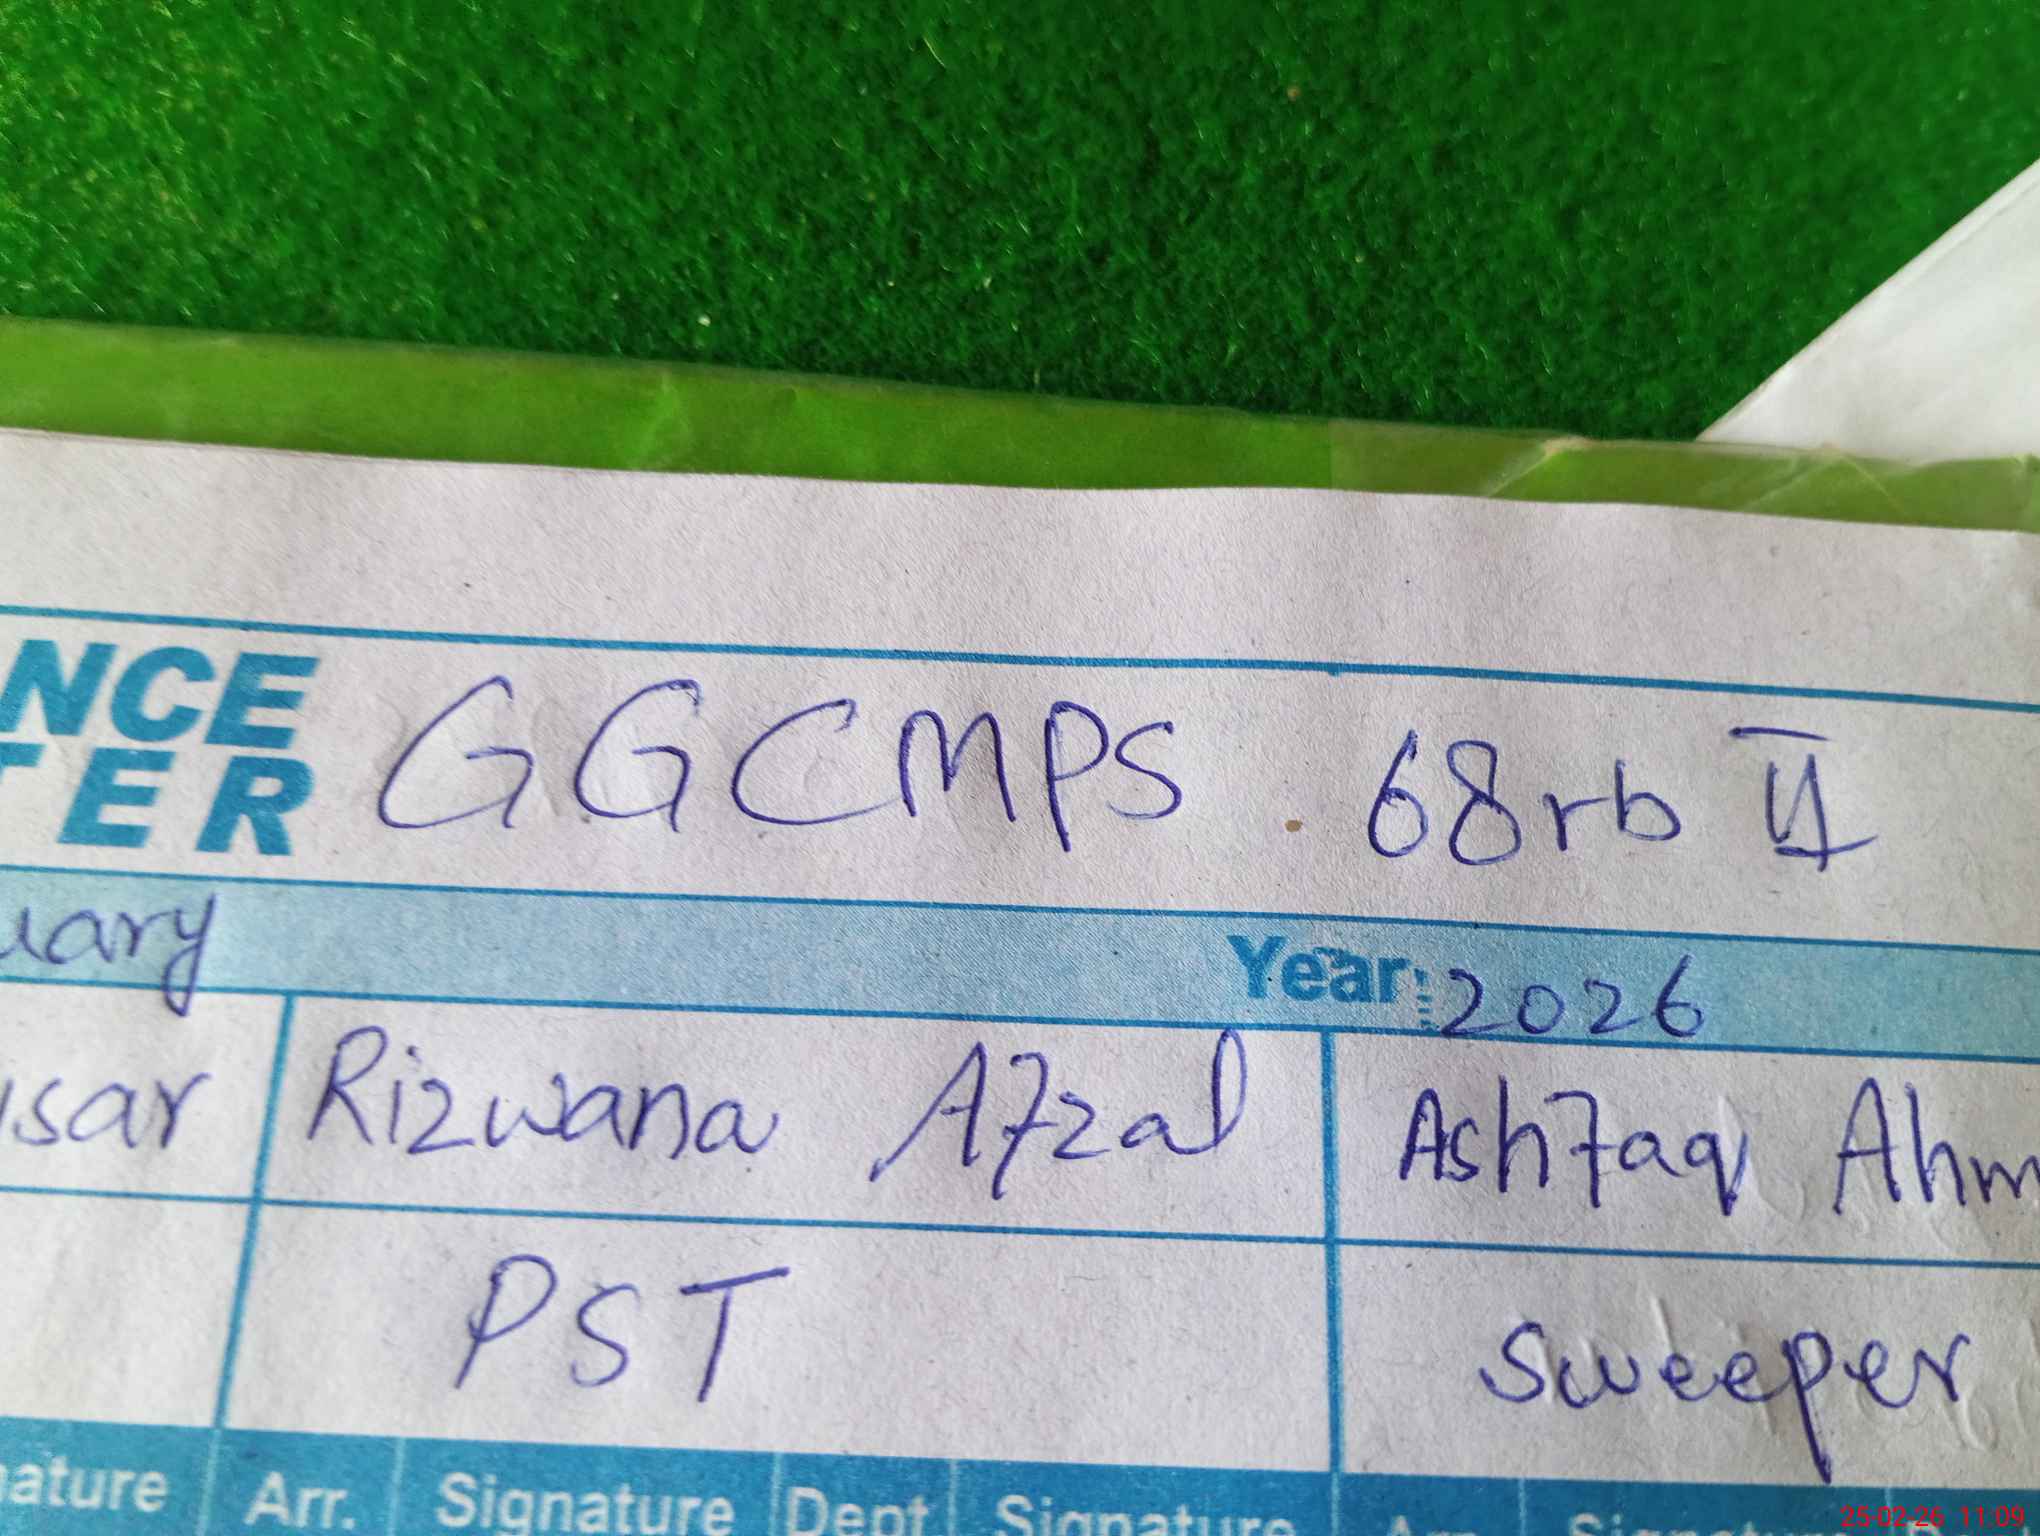 NCE
TER
GGCMPS. 68rb II
uary Year: 2026
isar Rizwana Afzal Ashfaq Ahm
PST Sweeper
nature Arr. Signature Dept. Signature Arr. Signature
25-02-26 11:09